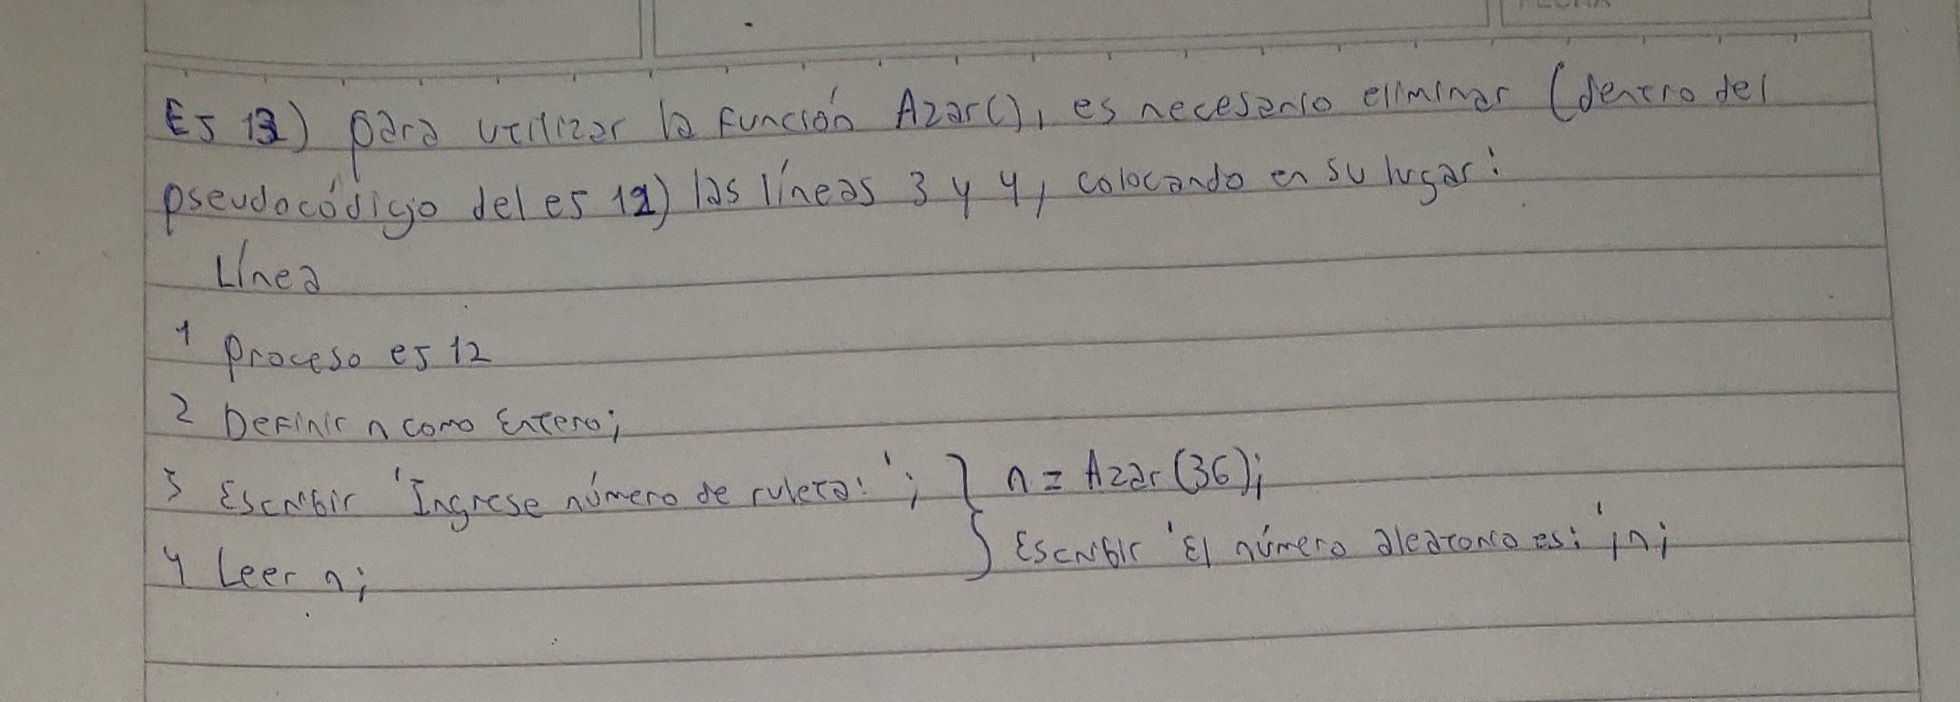 FECHA
Ej 13) para utilizar la función Azar(), es necesario eliminar (dentro del
pseudocódigo del ej 12) las líneas 3 y 4, colocando en su lugar:
Línea
1 Proceso ej 12
2 Definir n como Entero;
3 Escribir 'Ingrese número de ruleta:'; } n = Azar(36);
4 Leer n; Escribir 'El número aleatorio es: ',n;